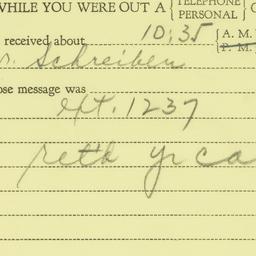 WHILE YOU WERE OUT A { TELEPHONE PERSONAL } C
received about 10:35 { A. M. P. M.
r. Schreiben
ose message was
ext. 1237
retd yr ca